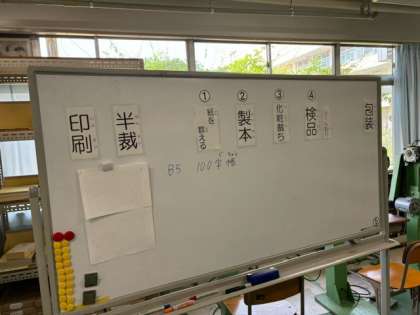 印刷
半裁
①
紙を
数える
②
製本
③
化粧裁ち
④
検品
包装
B5 100字帳